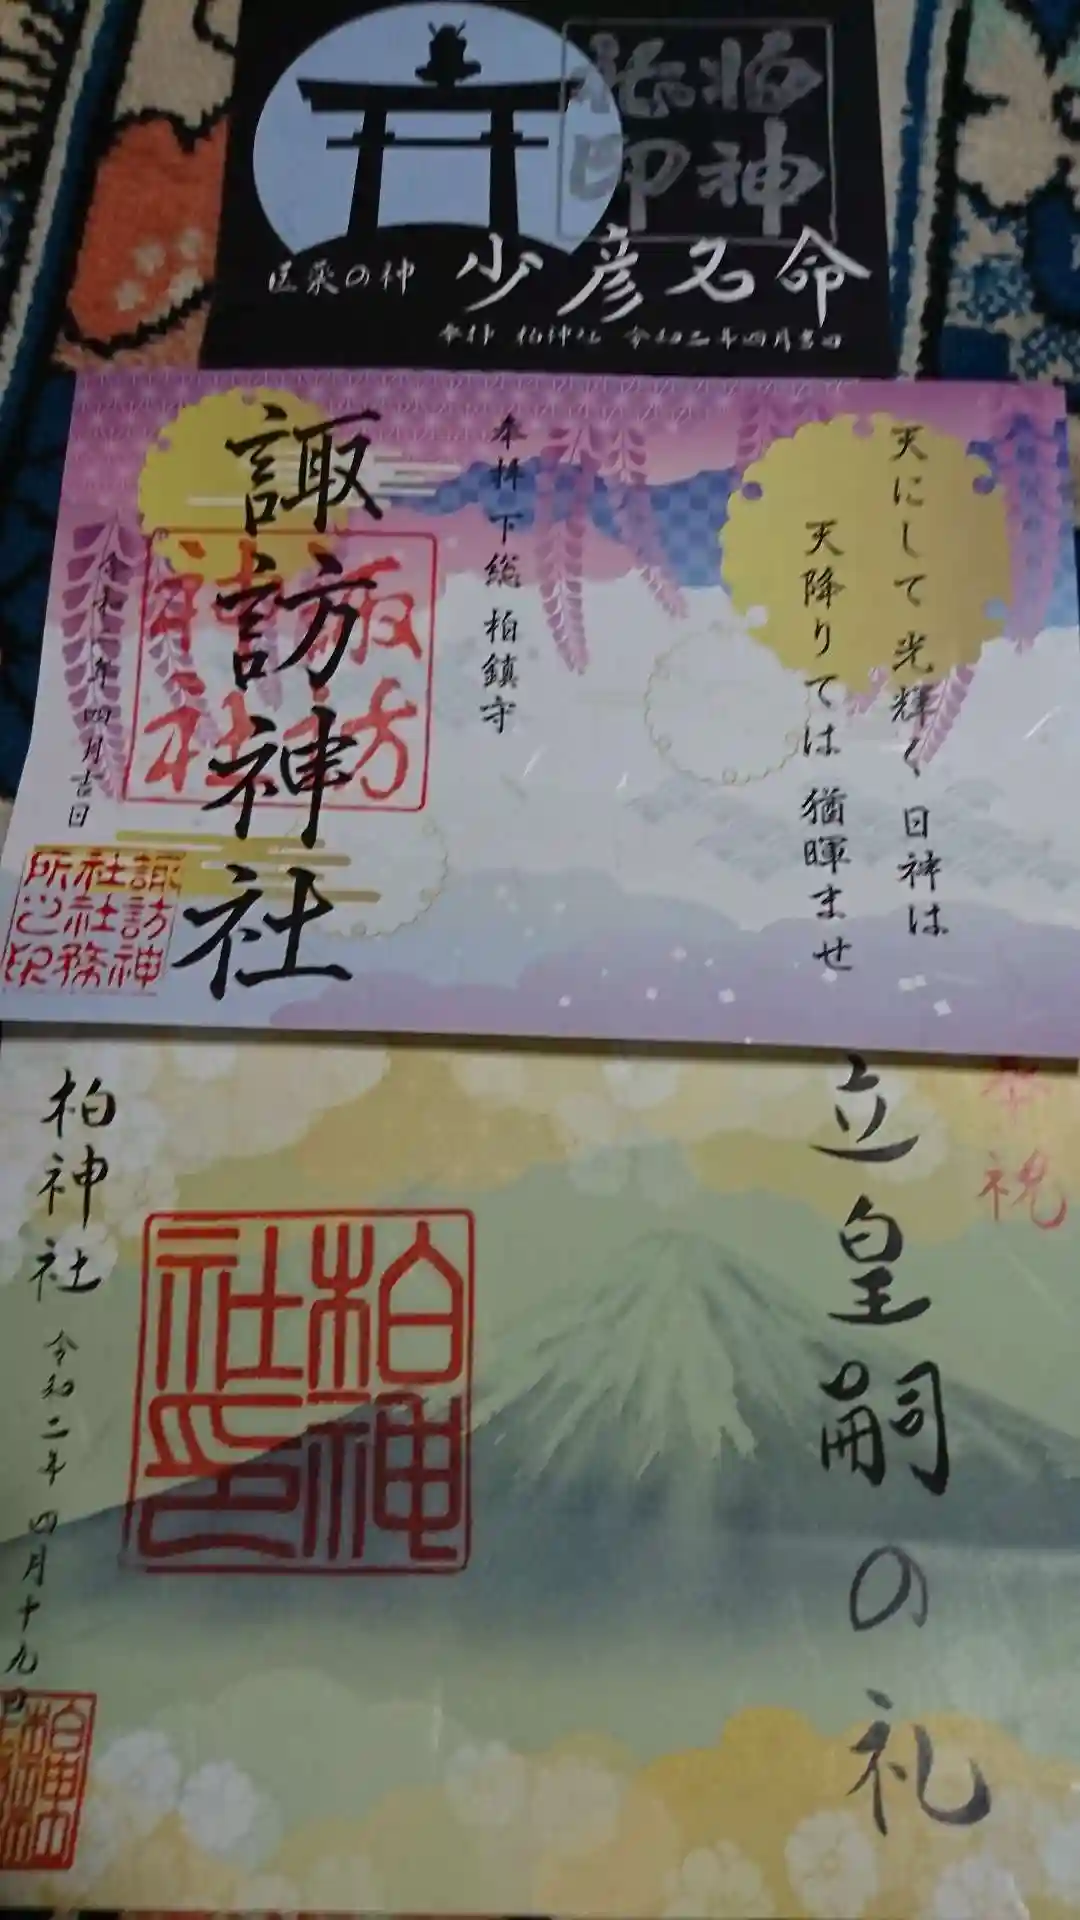 柏神
社印
医薬の神 少彦名命
奉拝 柏神社 令和二年四月吉日
天にして光輝く日神は
天降りては猶暉ませ
奉拝 下総 柏鎮守
諏訪神社
諏訪
神社
令和二年四月吉日
諏訪神
社社務
所之印
奉祝
立皇嗣の礼
柏神
社印
柏神社 令和二年四月十九日